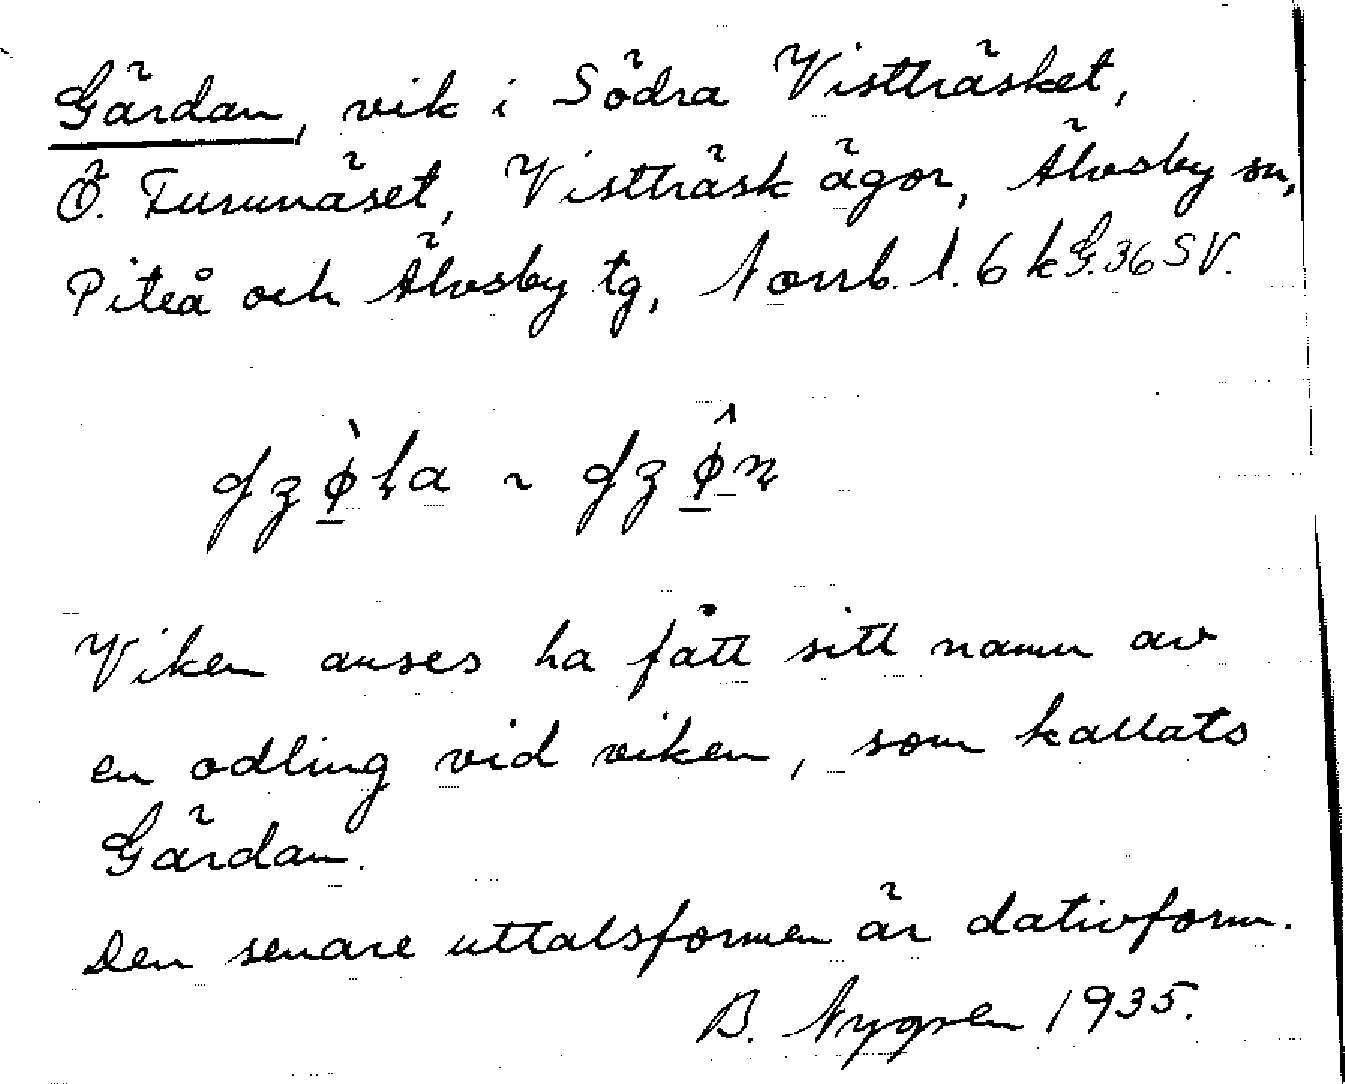 Gärdan, vik i Södra Vistträsket,
Ö. Furunäset, Vistträsk ägor, Älvsby sn,
Piteå och Älvsby tg, Norrb. l. 6 k G.36 SV.
Viken anses ha fått sitt namn av
en odling vid viken, som kallats
Gärdan.
Den senare uttalsformen är dativform.
B. Nygren 1935.